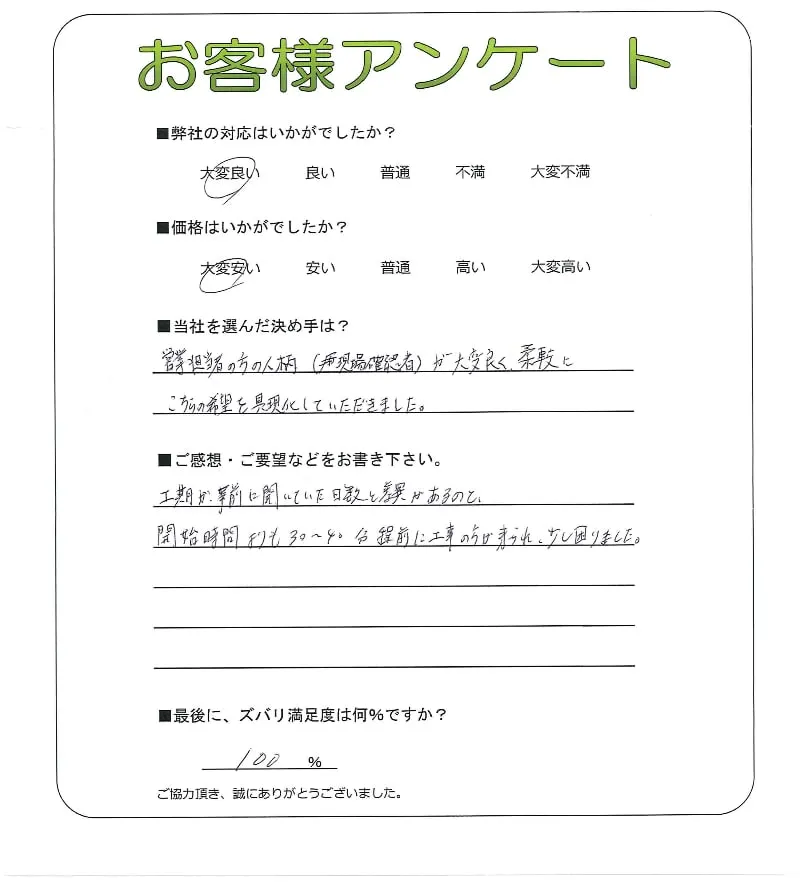 お客様アンケート
■弊社の対応はいかがでしたか？
大変良い 良い 普通 不満 大変不満
■価格はいかがでしたか？
大変安い 安い 普通 高い 大変高い
■当社を選んだ決め手は？
営業担当者の方の人柄（兼現場確認者）が大変良く、柔軟に
こちらの希望を具現化していただきました。
■ご感想・ご要望などをお書き下さい。
工期が、事前に聞いていた日数と差異があるので、
開始時間よりも30～40分程前に工事の方が来られ、少し困りました。
■最後に、ズバリ満足度は何％ですか？
100 ％
ご協力頂き、誠にありがとうございました。